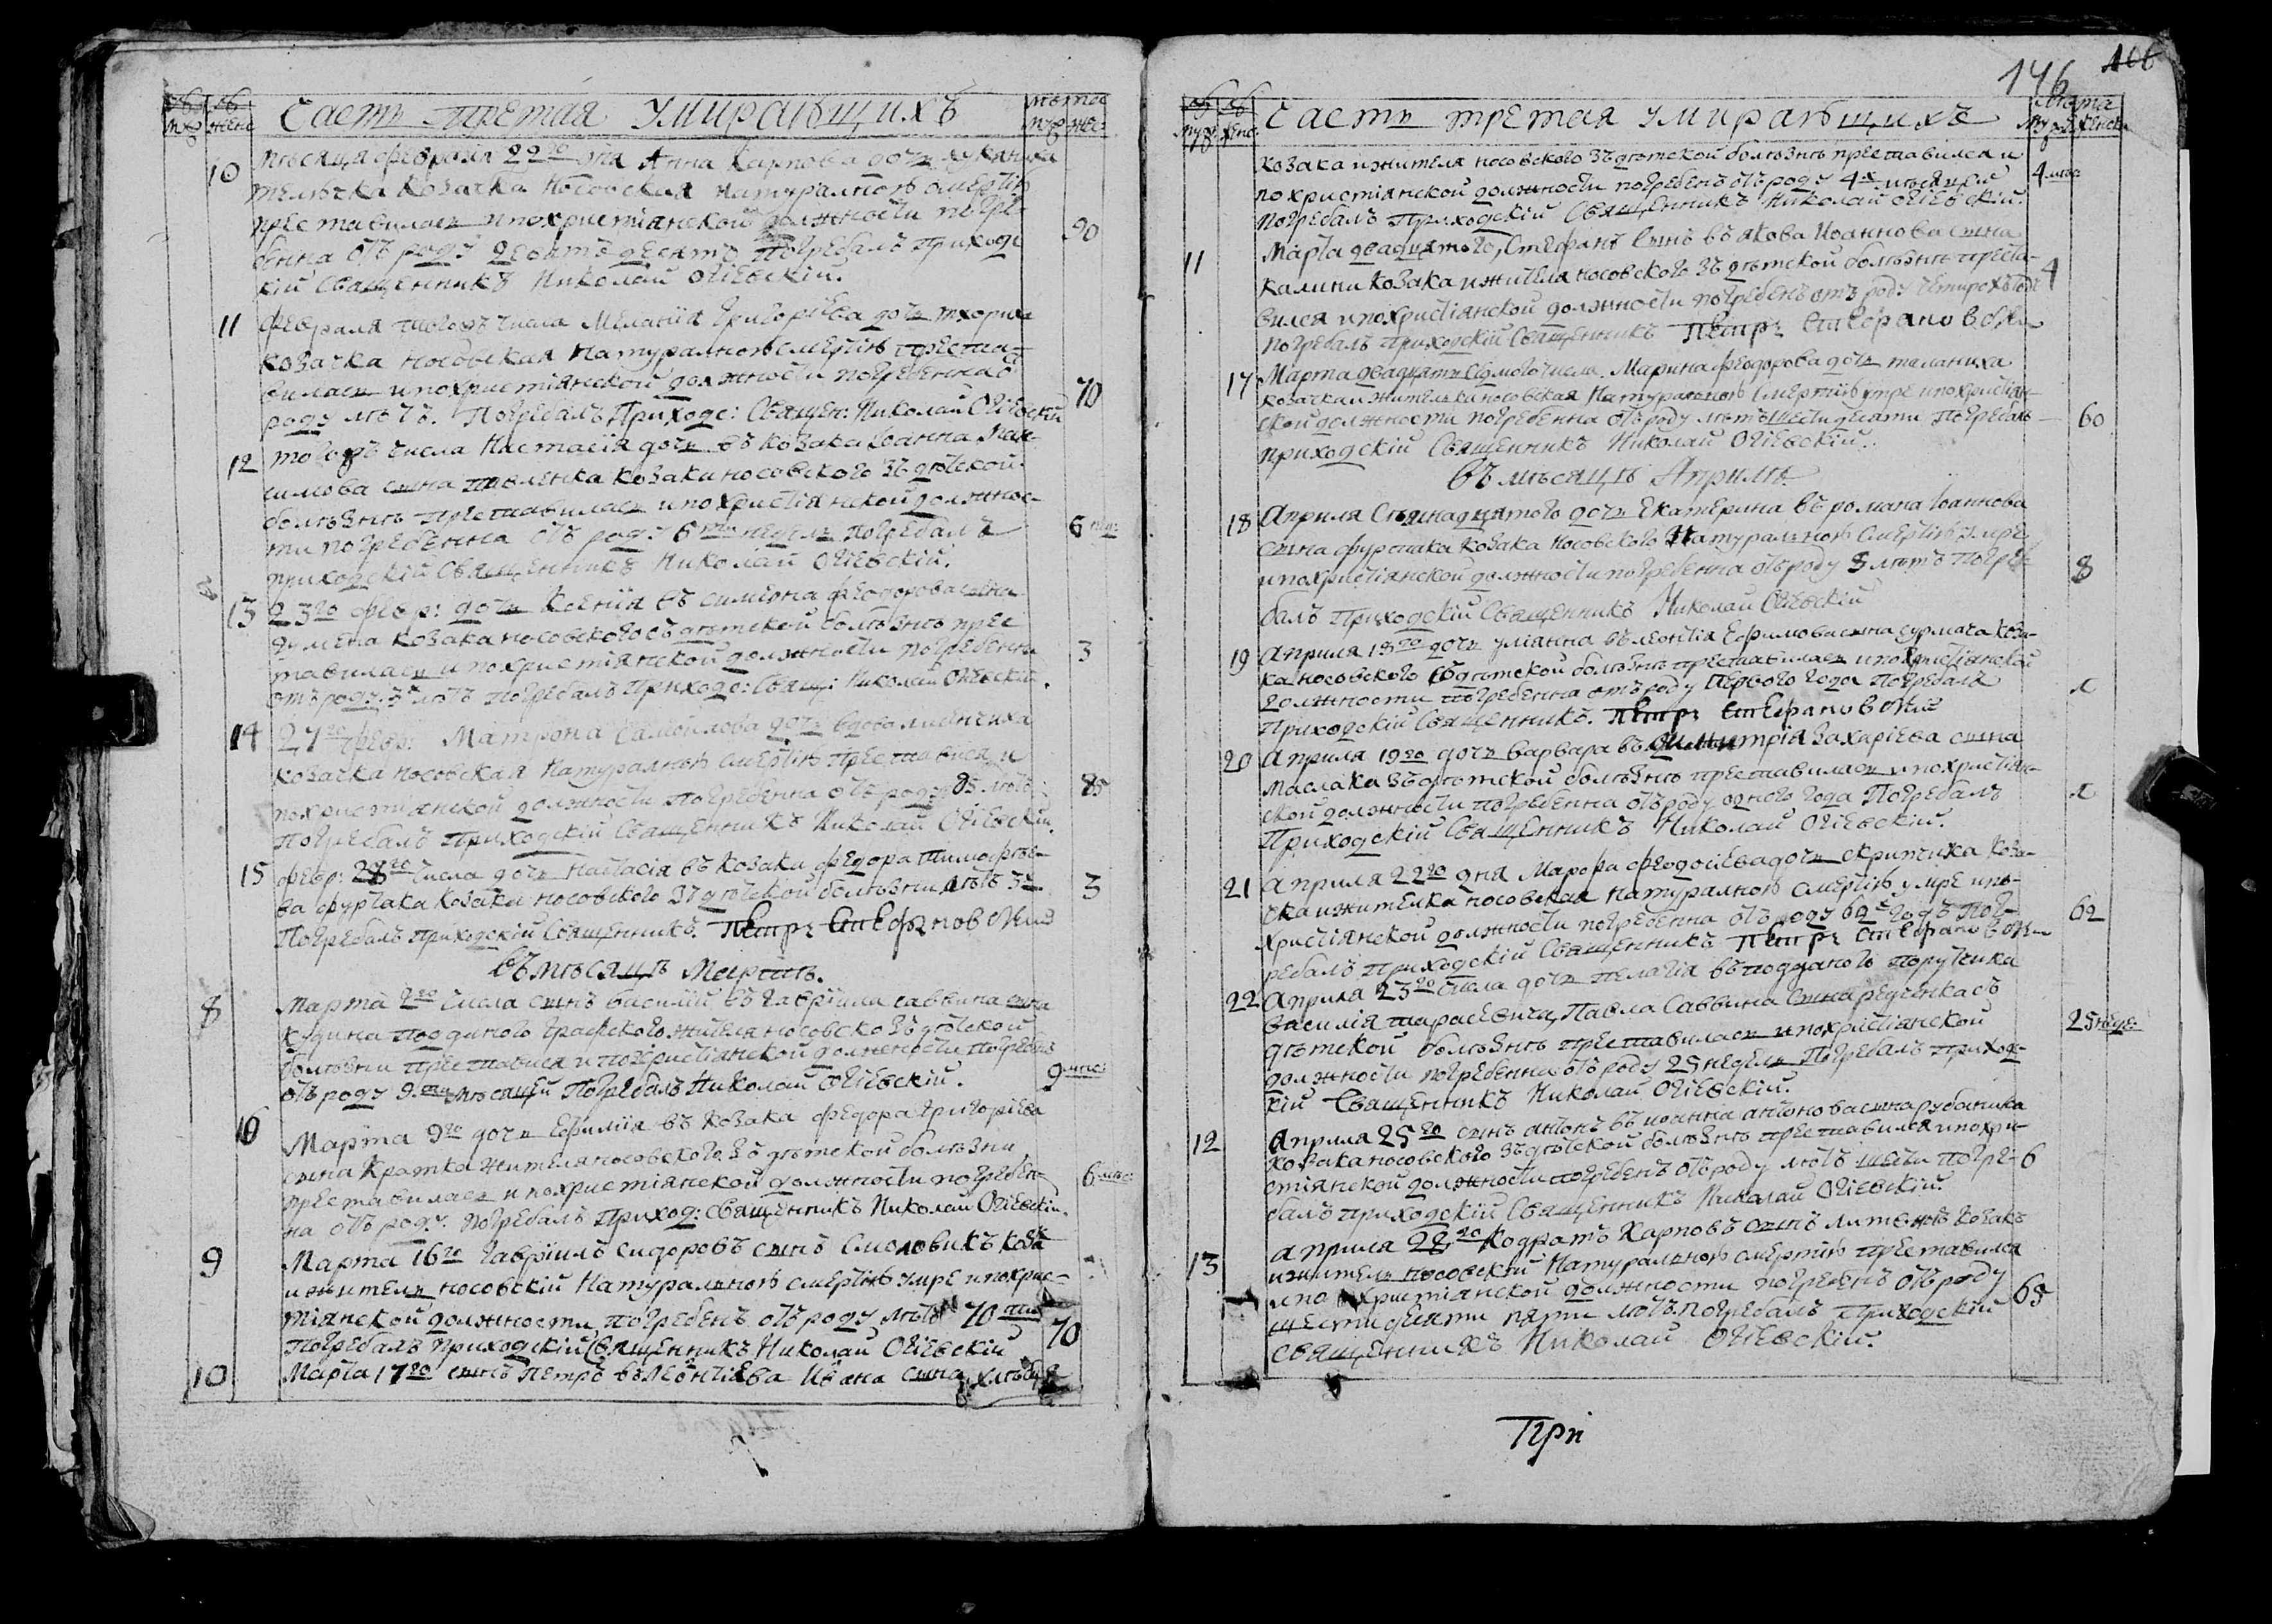 Часть третая Умиравщихъ
10 мѣсяца февраля 22го дня Анна Карпова дочь
козачка Носовская натуралною смертію
преставилась и похристіянской должности погре-
бенна отъ роду девятъ десятъ погребалъ приходс 90
кій Священникъ Николай Огіевскій.
11 февраля тогожъ числа Меланія Григоріева дочь
козачка носовская натуралною смертію престав-
вилась и похристіянской должности погребенна 
роду лѣтъ. Погребалъ Приходс: Священ: Николай Огіевскій 70
12 тогожъ числа Настасія дочь въ козака Іоанна Мак-
симова сына козака носовского зъ дѣтской
болѣзнѣ преставилась и похристіянской должнос-
ти погребенна отъ роду 6 недель погребалъ 6 нед:
приходскій Священникъ Николай Огіевскій.
13 23го февр: дочь Ксенія въ симеона феодорова сына
козака носовского съ дѣтской болѣзнѣ прес
тавилась и похристіянской должности погребенна 3
отъ роду 3 лѣтъ погребалъ Приходс: Свящ: Николай Огіевскій.
14 27го февр: Матрона Самойлова дочь вдова
козачка носовская натуралнѣ смертію преставися и
похристіянской должности погребенна отъ роду 85 лѣтъ 85
погребалъ приходскій Священникъ Николай Огіевскій.
15 февр: 28го числа дочь Настасія въ козака федора тимофѣе-
ва фурсака козака носовского зъ дѣтской болѣзни лѣтъ 3 3
Погребалъ приходскій Священникъ. Петръ Стефановскій
въ мѣсяцѣ Мартѣ.
8 Марта 2го числа сынъ василій въ гавріила саввина сына
кудина подданого графского жителя носовско зъ дѣтской
болѣзни преставися и похристіянской должности погребенъ
отъ роду 9 мѣсяцей Погребалъ Николай Огіевскій. 9 мѣс:
16 Марта 9го дочь Ефимія въ козака федора григоріева
сына Кратка жителя носовского зъ дѣтской болѣзни
преставилась и похристіянской должности погребен- 6 мѣс:
на отъ роду. погребалъ Приход: Священникъ Николай Огіевскій.
9 Марта 16го Гавріилъ Сидоровъ сынъ Смоловикъ коза
и житель носовскій натуралною смертію умре и похрис-
тіянской должности погребенъ отъ роду лѣтъ 70
погребалъ приходскій Священникъ Николай Огіевскій 70
10 Марта 17го сынъ Петръ въ Леонтіева Ивана сына
146
Часть третая умиравщихъ
козака и жителя носовского зъ дѣтской болѣзнѣ преставился и
по христіянской должности погребенъ отъ роду 4х мѣсяцей 4 мѣс
погребалъ Приходскій Священникъ Николай Огіевскій.
11 Марта двадцятого, Стефанъ сынъ въ якова Иоаннова сына
калини козака и жителя носовского зъ дѣтской болѣзнѣ преста- 4
вился и похристіянской должности погребенъ отъ роду четирохъ годъ
погребалъ приходскій священникъ Петръ Стефановскій
17 Марта двадцять седмого числа. Марина феодорова дочь таланиха
козачка и жителька носовская натуралною смертію умре и похристіян-
ской должности погребенна отъ роду лѣтъ шести десяти погребалъ 60
приходскій Священникъ Николай Огіевскій.
въ мѣсяцѣ Априлѣ
18 Априля дочь Екатерина въ романа Іоаннова
сына фурсака козака носовского натуралною смертію умре,
и похристіянской должности погребенна отъ роду 8 лѣтъ погре- 8
балъ приходскій Священникъ Николай Огіевскій
19 Априля 18го дочь уліянна въ леонтія Ефимова сына сурмача коза-
ка носовского съ дѣтской болѣзнѣ преставилась и похристіянской
должности погребенна отъ роду первого года погребалъ 1
Приходскій Священникъ. Петръ Стефановскій
20 Априля 19го дочь варвара въ димитрія Захаріева сына
маслака зъ дѣтской болѣзнѣ преставилась и похристіян-
ской должности погребенна отъ роду одного года Погребалъ 1
Приходскій Священникъ Николай Огіевскій.
21 Априля 22го дня Марфа феодосіева дочь скрипчиха коза-
чка и жителка носовская натуралною смертію умре и по-
христіянской должности погребенна отъ роду 62 годъ Пог- 62
ребалъ приходскій Священникъ Петръ Стефановскій
22 Априля 23го числа дочь пелагія въ подданого поручика
василія тарасевича, Павла Саввина сына редченка съ
дѣтской болѣзнѣ преставилась и похристіянской 25 неде:
должности погребенна отъ роду 25 недель Погребалъ приход-
кій Священникъ Николай Огіевскій.
12 Априля 25го сынъ антонъ въ иоанна антонова сына рубаника
козака носовского зъ дѣтской болѣзнѣ преставился и похри-
стіянской должности погребенъ отъ роду лѣтъ шести погре- 6
балъ приходскій Священникъ Николай Огіевскій.
13 Априля 28го Кодратъ Карповъ сынъ козакъ
и житель носовскій натуралною смертію преставился
и по христіянской должности погребенъ отъ роду
шестидесяти пяти лѣтъ погребалъ приходскій 65
священникъ Николай Огіевскій.
При